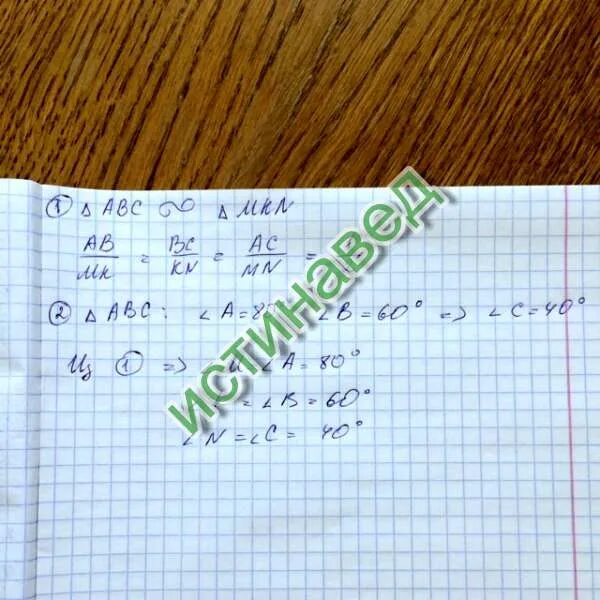 ① △ ABC ∾ △ MKN
AB/MK = BC/KN = AC/MN =
② △ ABC: ∠A = 80 ∠B = 60° => ∠C = 40°
Из ① => ∠A = 80°
= ∠B = 60°
∠N = ∠C = 40°
истинавед